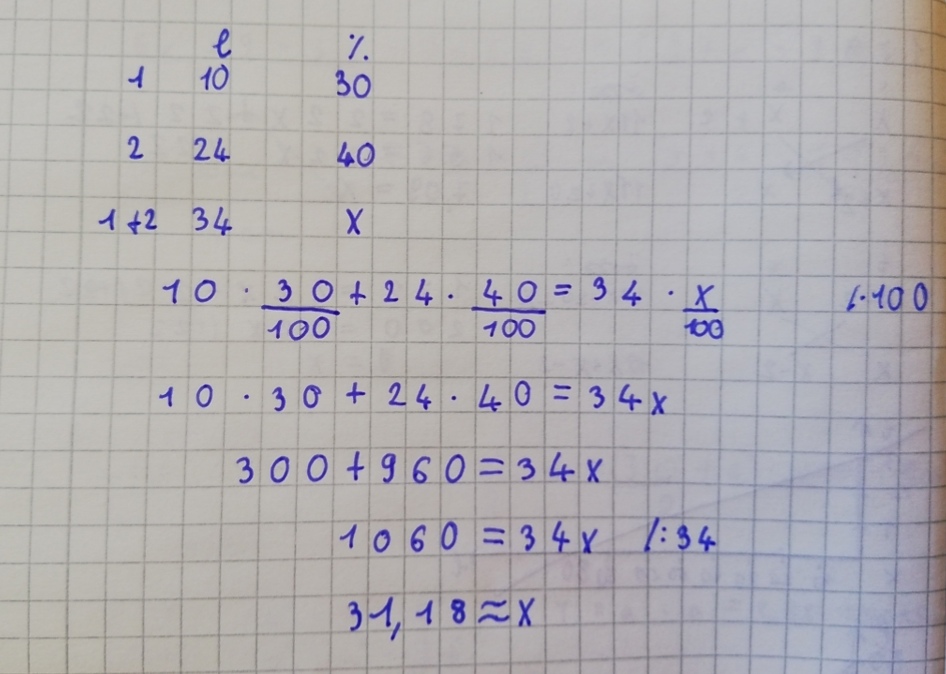 l %
1 10 30
2 24 40
1+2 34 X
10 · 30/100 + 24 · 40/100 = 34 · x/100 /·100
10 · 30 + 24 · 40 = 34x
300 + 960 = 34x
1060 = 34x /:34
31,18 ≈ x